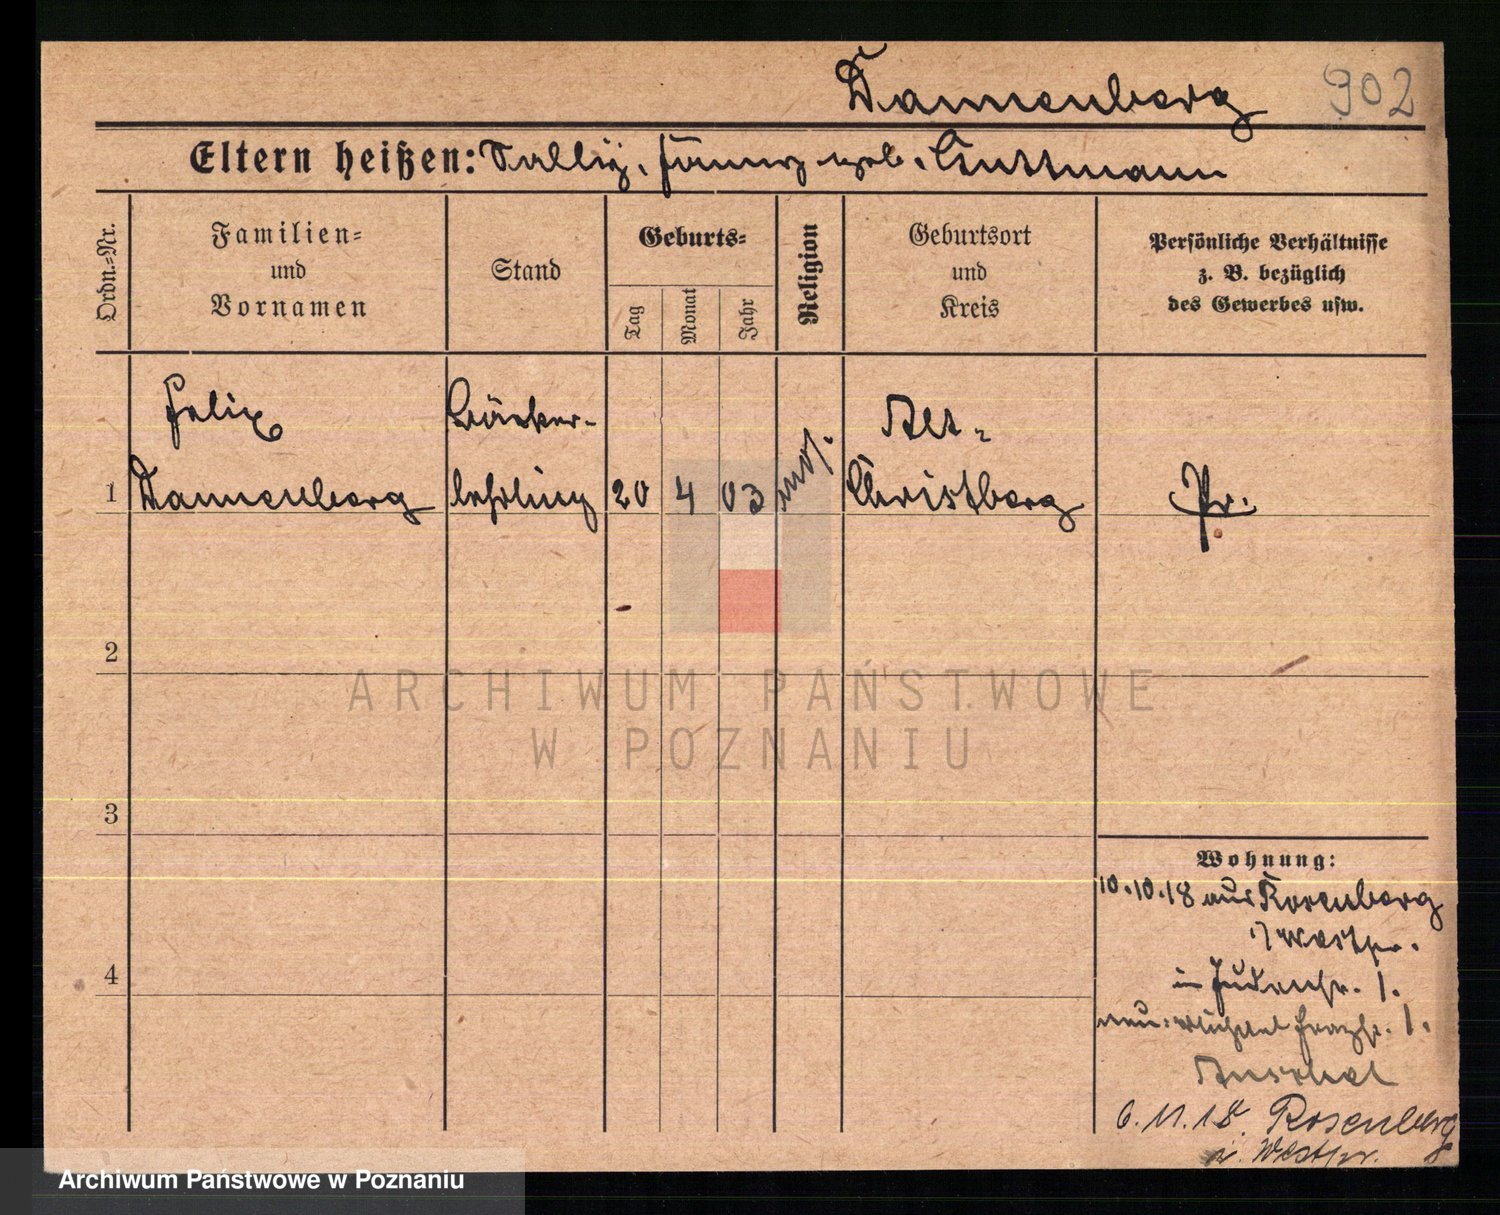 Dannenberg 902
Eltern heißen: Sally, Fanny geb. Guttmann
Ordn.-Nr.
Familien-
und
Vornamen
Stand
Geburts-
Tag
Monat
Jahr
Religion
Geburtsort
und
Kreis
Persönliche Verhältnisse
z. B. bezüglich
des Gewerbes usw.
Felix
Dannenberg
Bäcker-
lehrling
1
20
4
03
mos.
Alt-
Christberg
Pr.
2
3
4
Wohnung:
10.10.18 aus Rosenberg
i/ Westpr.
in Judenstr. 1.
neu:
1.
6.11.18. Rosenberg
i. Westpr.
ARCHIWUM PAŃSTWOWE
W POZNANIU
Archiwum Państwowe w Poznaniu